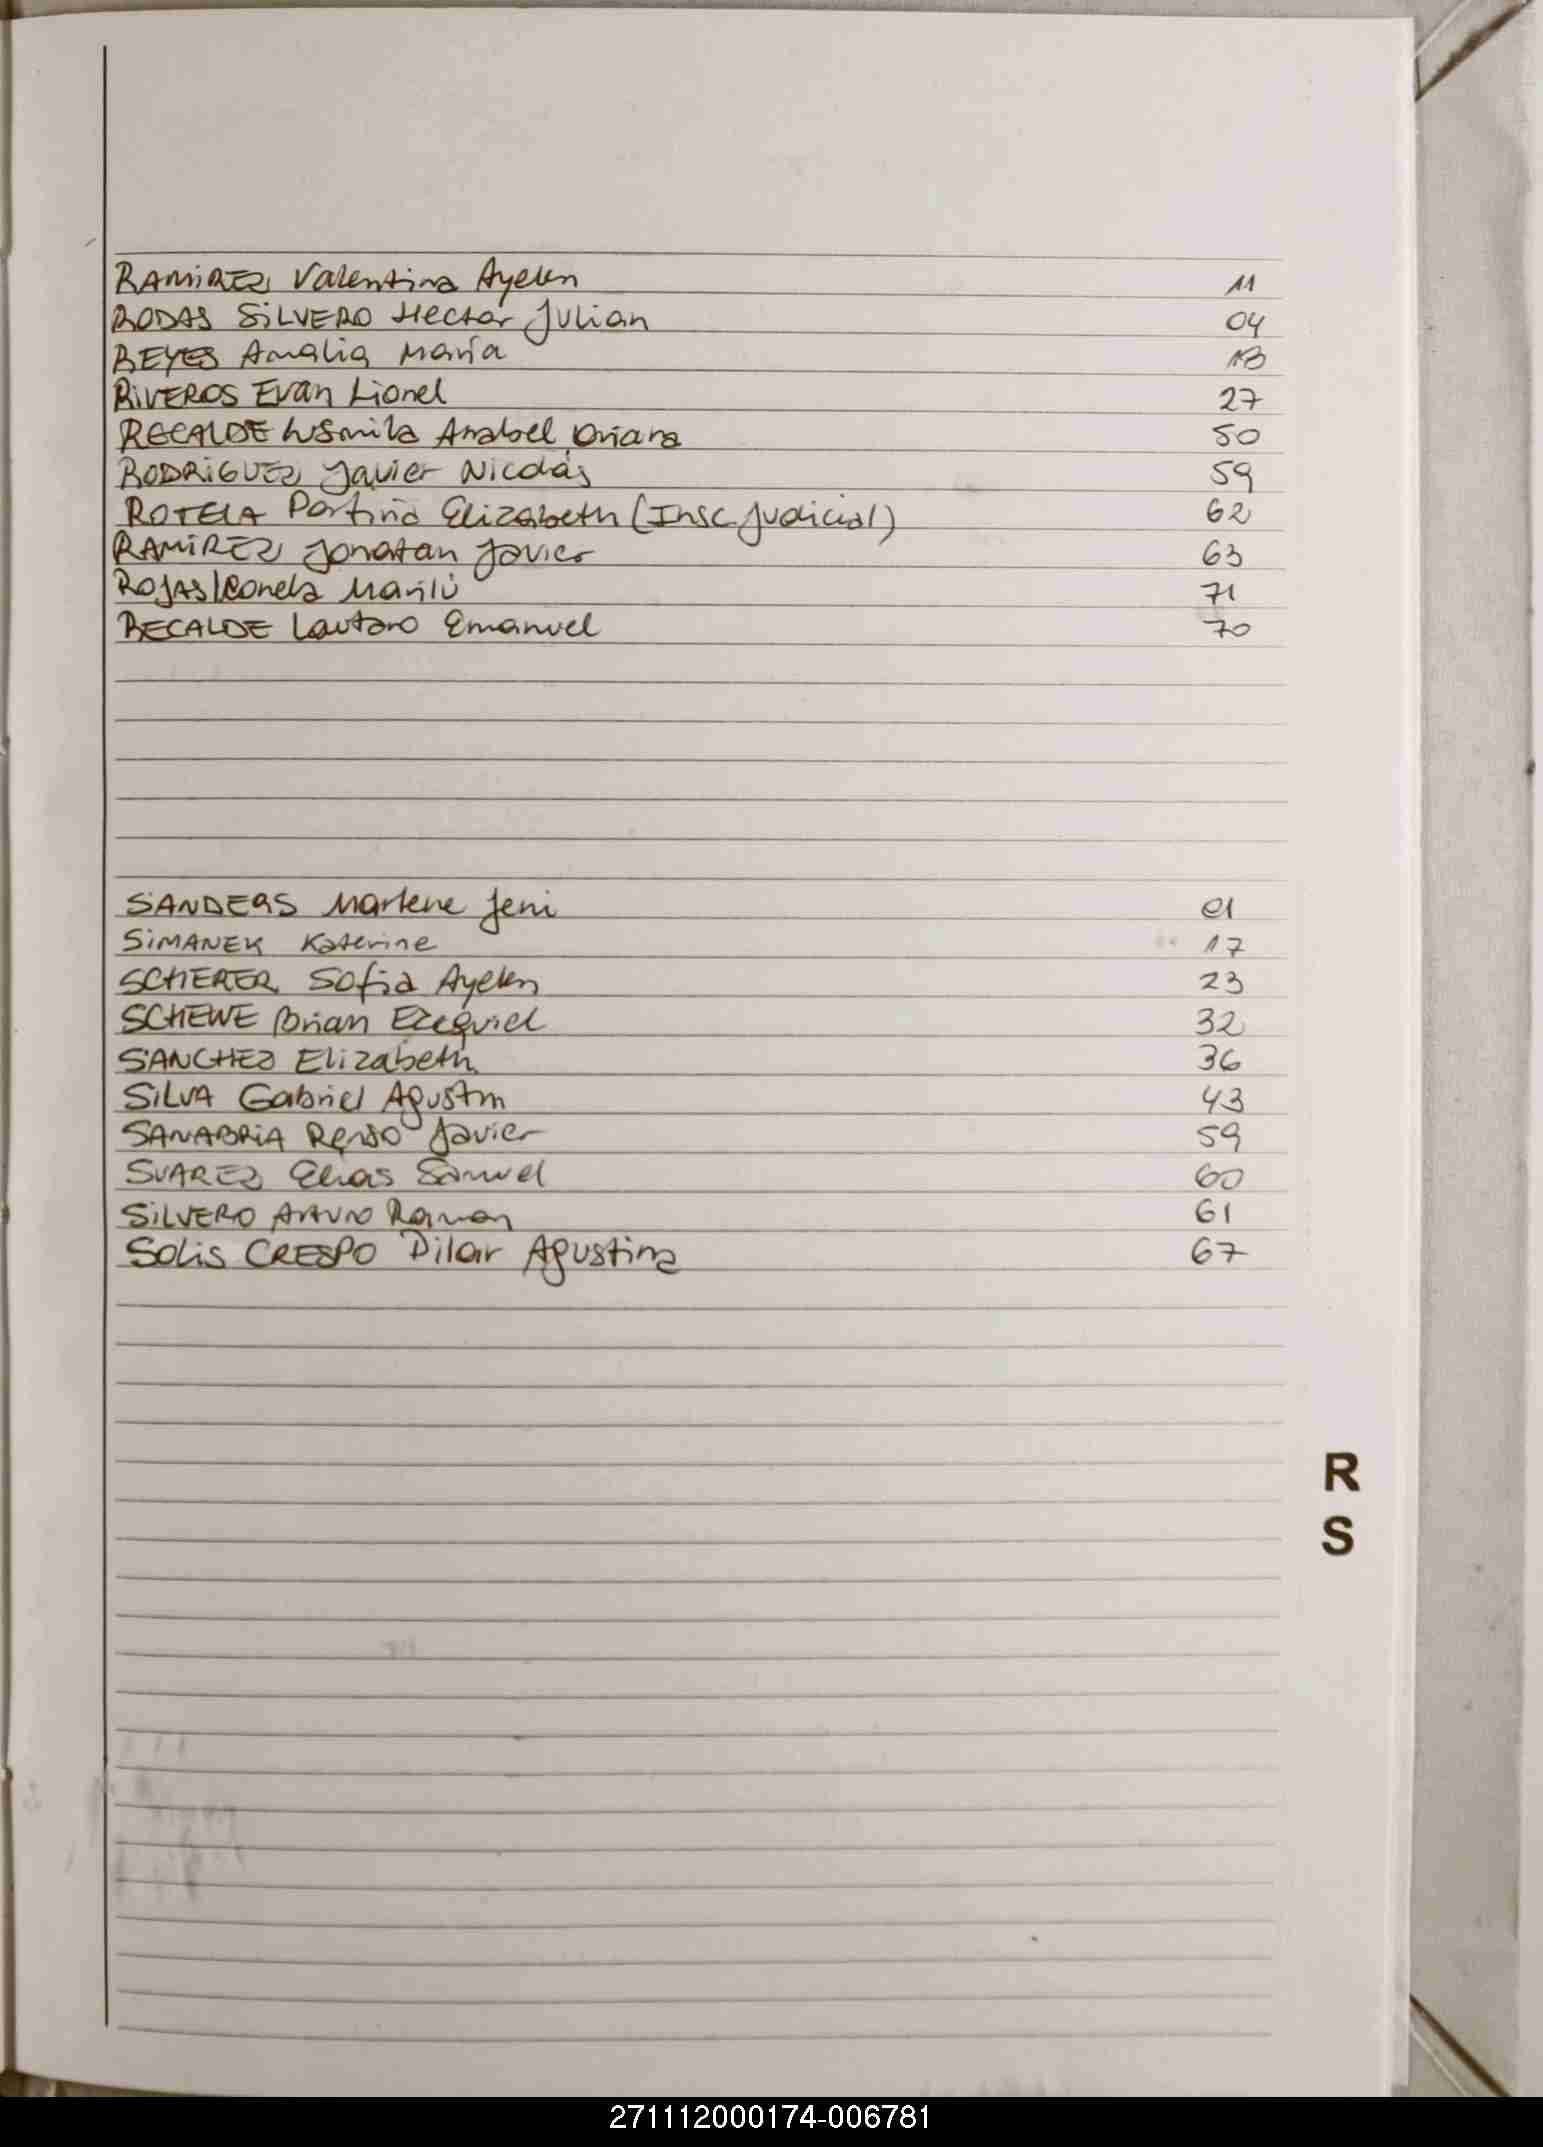 RAMIREZ Valentina Ayelen 11
RODAS SILVERO Hector Julian 04
REYES Amalia María 13
RIVEROS Evan Lionel 27
RECALDE Ludmila Anabel Oriana 50
RODRIGUEZ Javier Nicolás 59
ROTELA Elizabeth (Insc. Judicial) 62
RAMIREZ Jonatan Javier 63
ROJAS Leonela Marilú 71
RECALDE Lautaro Emanuel 70
SANDERS Marlene Jeni 01
SIMANEK Katerine 17
SCHERER Sofia Ayelen 23
SCHEWE Brian Ezequiel 32
SANCHEZ Elizabeth 36
SILVA Gabriel Agustin 43
SANABRIA Renso Javier 59
SUAREZ Elias Samuel 60
SILVERO Arturo Ramon 61
SOLIS CRESPO Pilar Agustina 67
R
S
271112000174-006781